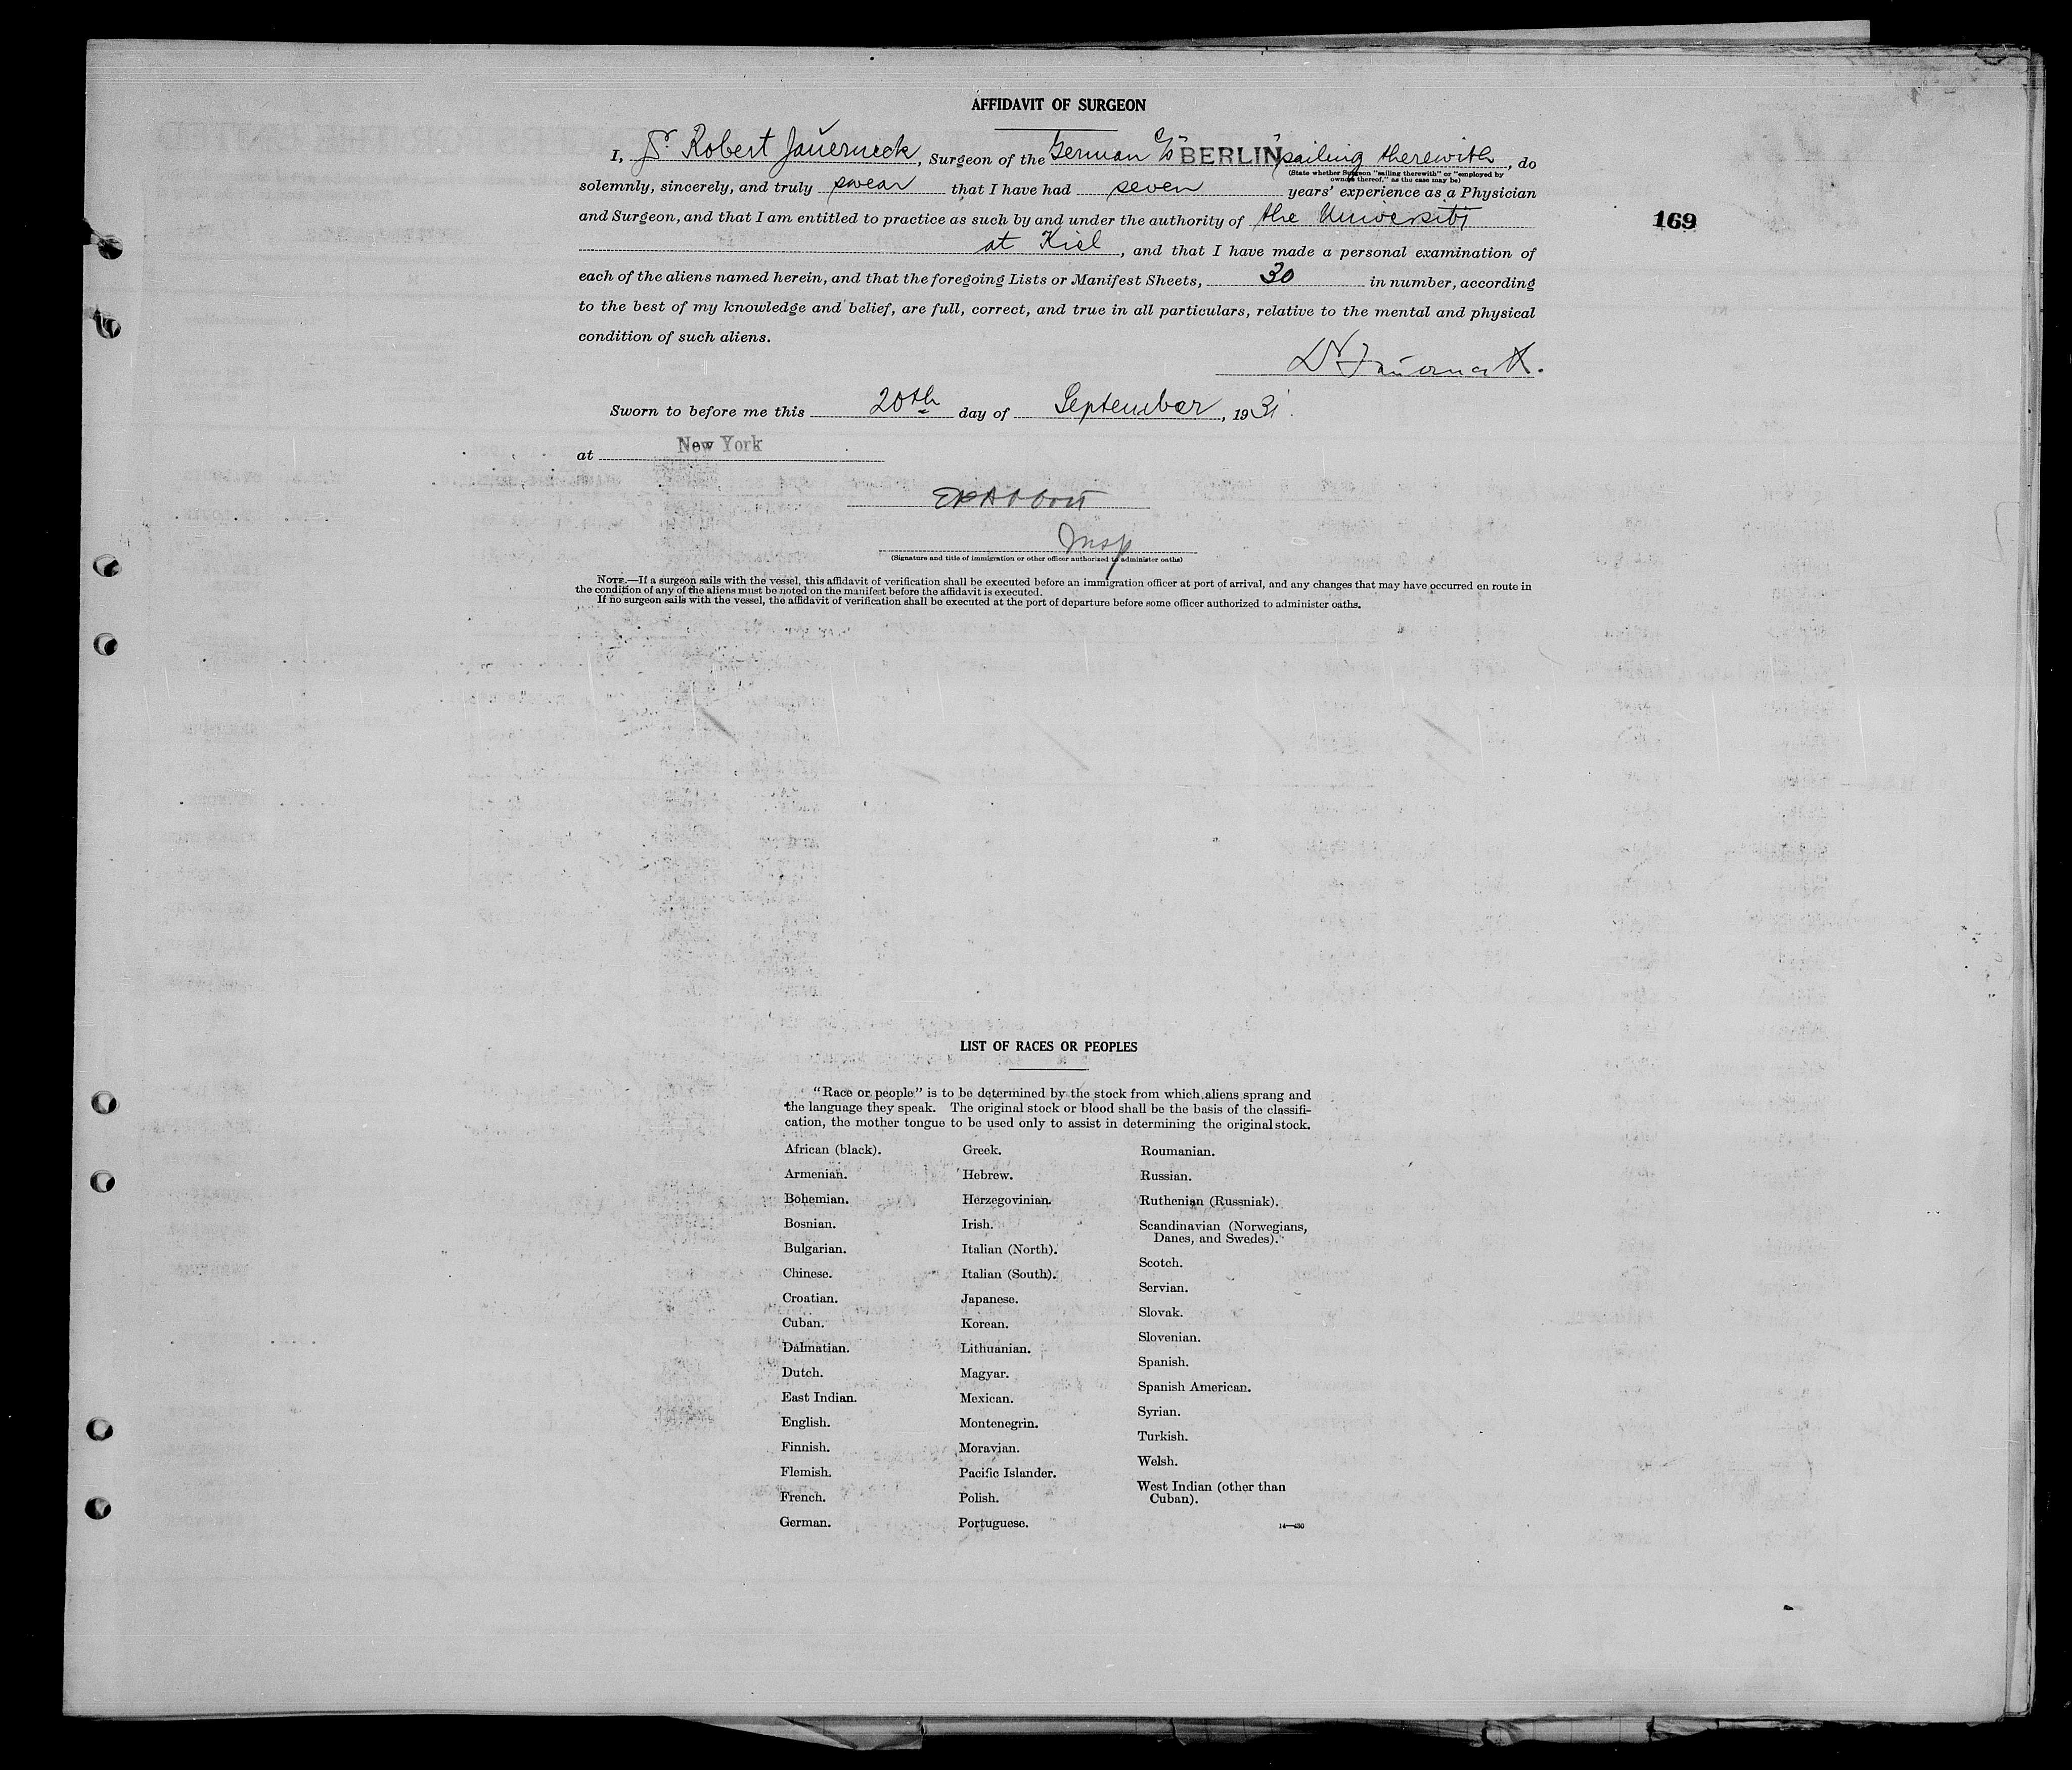 AFFIDAVIT OF SURGEON
I, Dr. Robert Jauerneck, Surgeon of the German S/S "BERLIN" sailing therewith, do
(State whether Surgeon "sailing therewith" or "employed by
owners thereof," as the case may be)
solemnly, sincerely, and truly swear that I have had seven years' experience as a Physician
and Surgeon, and that I am entitled to practice as such by and under the authority of the Universiti
at Kiel, and that I have made a personal examination of
169
each of the aliens named herein, and that the foregoing Lists or Manifest Sheets, 30 in number, according
to the best of my knowledge and belief, are full, correct, and true in all particulars, relative to the mental and physical
condition of such aliens.
Sworn to before me this 20th day of September, 1931.
at New York
Insp
(Signature and title of immigration or other officer authorized to administer oaths)
NOTE.—If a surgeon sails with the vessel, this affidavit of verification shall be executed before an immigration officer at port of arrival, and any changes that may have occurred en route in
the condition of any of the aliens must be noted on the manifest before the affidavit is executed.
If no surgeon sails with the vessel, the affidavit of verification shall be executed at the port of departure before some officer authorized to administer oaths.
LIST OF RACES OR PEOPLES
"Race or people" is to be determined by the stock from which aliens sprang and
the language they speak. The original stock or blood shall be the basis of the classifi-
cation, the mother tongue to be used only to assist in determining the original stock.
African (black).
Armenian.
Bohemian.
Bosnian.
Bulgarian.
Chinese.
Croatian.
Cuban.
Dalmatian.
Dutch.
East Indian.
English.
Finnish.
Flemish.
French.
German.
Greek.
Hebrew.
Herzegovinian.
Irish.
Italian (North).
Italian (South).
Japanese.
Korean.
Lithuanian.
Magyar.
Mexican.
Montenegrin.
Moravian.
Pacific Islander.
Polish.
Portuguese.
Roumanian.
Russian.
Ruthenian (Russniak).
Scandinavian (Norwegians,
Danes, and Swedes).
Scotch.
Servian.
Slovak.
Slovenian.
Spanish.
Spanish American.
Syrian.
Turkish.
Welsh.
West Indian (other than
Cuban).
14—430